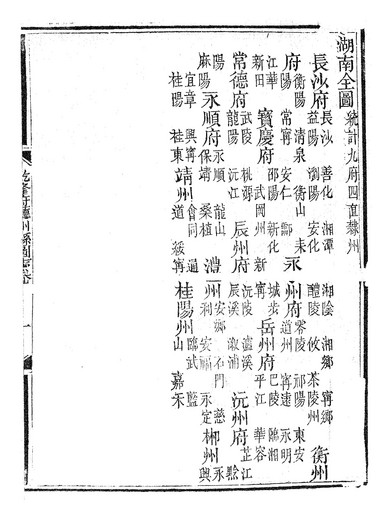 湖南全圖 統計九府四直隸州
長沙府 長沙 善化 湘潭 湘陰 湘鄉 寧鄉 益陽 瀏陽 安化 醴陵 攸 茶陵州 衡州
府 衡陽 清泉 衡山 耒陽 常寧 安仁 酃 永州府 零陵 祁陽 東安 道州 寧遠 永明
江華 新田 寶慶府 邵陽 新化 城步 武岡州 新寧 岳州府 巴陵 臨湘 平江 華容
常德府 武陵 桃源 龍陽 沅江 辰州府 沅陵 瀘溪 辰溪 漵浦 沅州府 芷江 黔
陽 麻陽 永順府 永順 龍山 保靖 桑植 澧州 安鄉 石門 慈利 安福 永定 郴州 永興
宜章 興寧 桂陽 桂東 靖州 會同 通道 綏寧 桂陽州 臨武 藍山 嘉禾
一